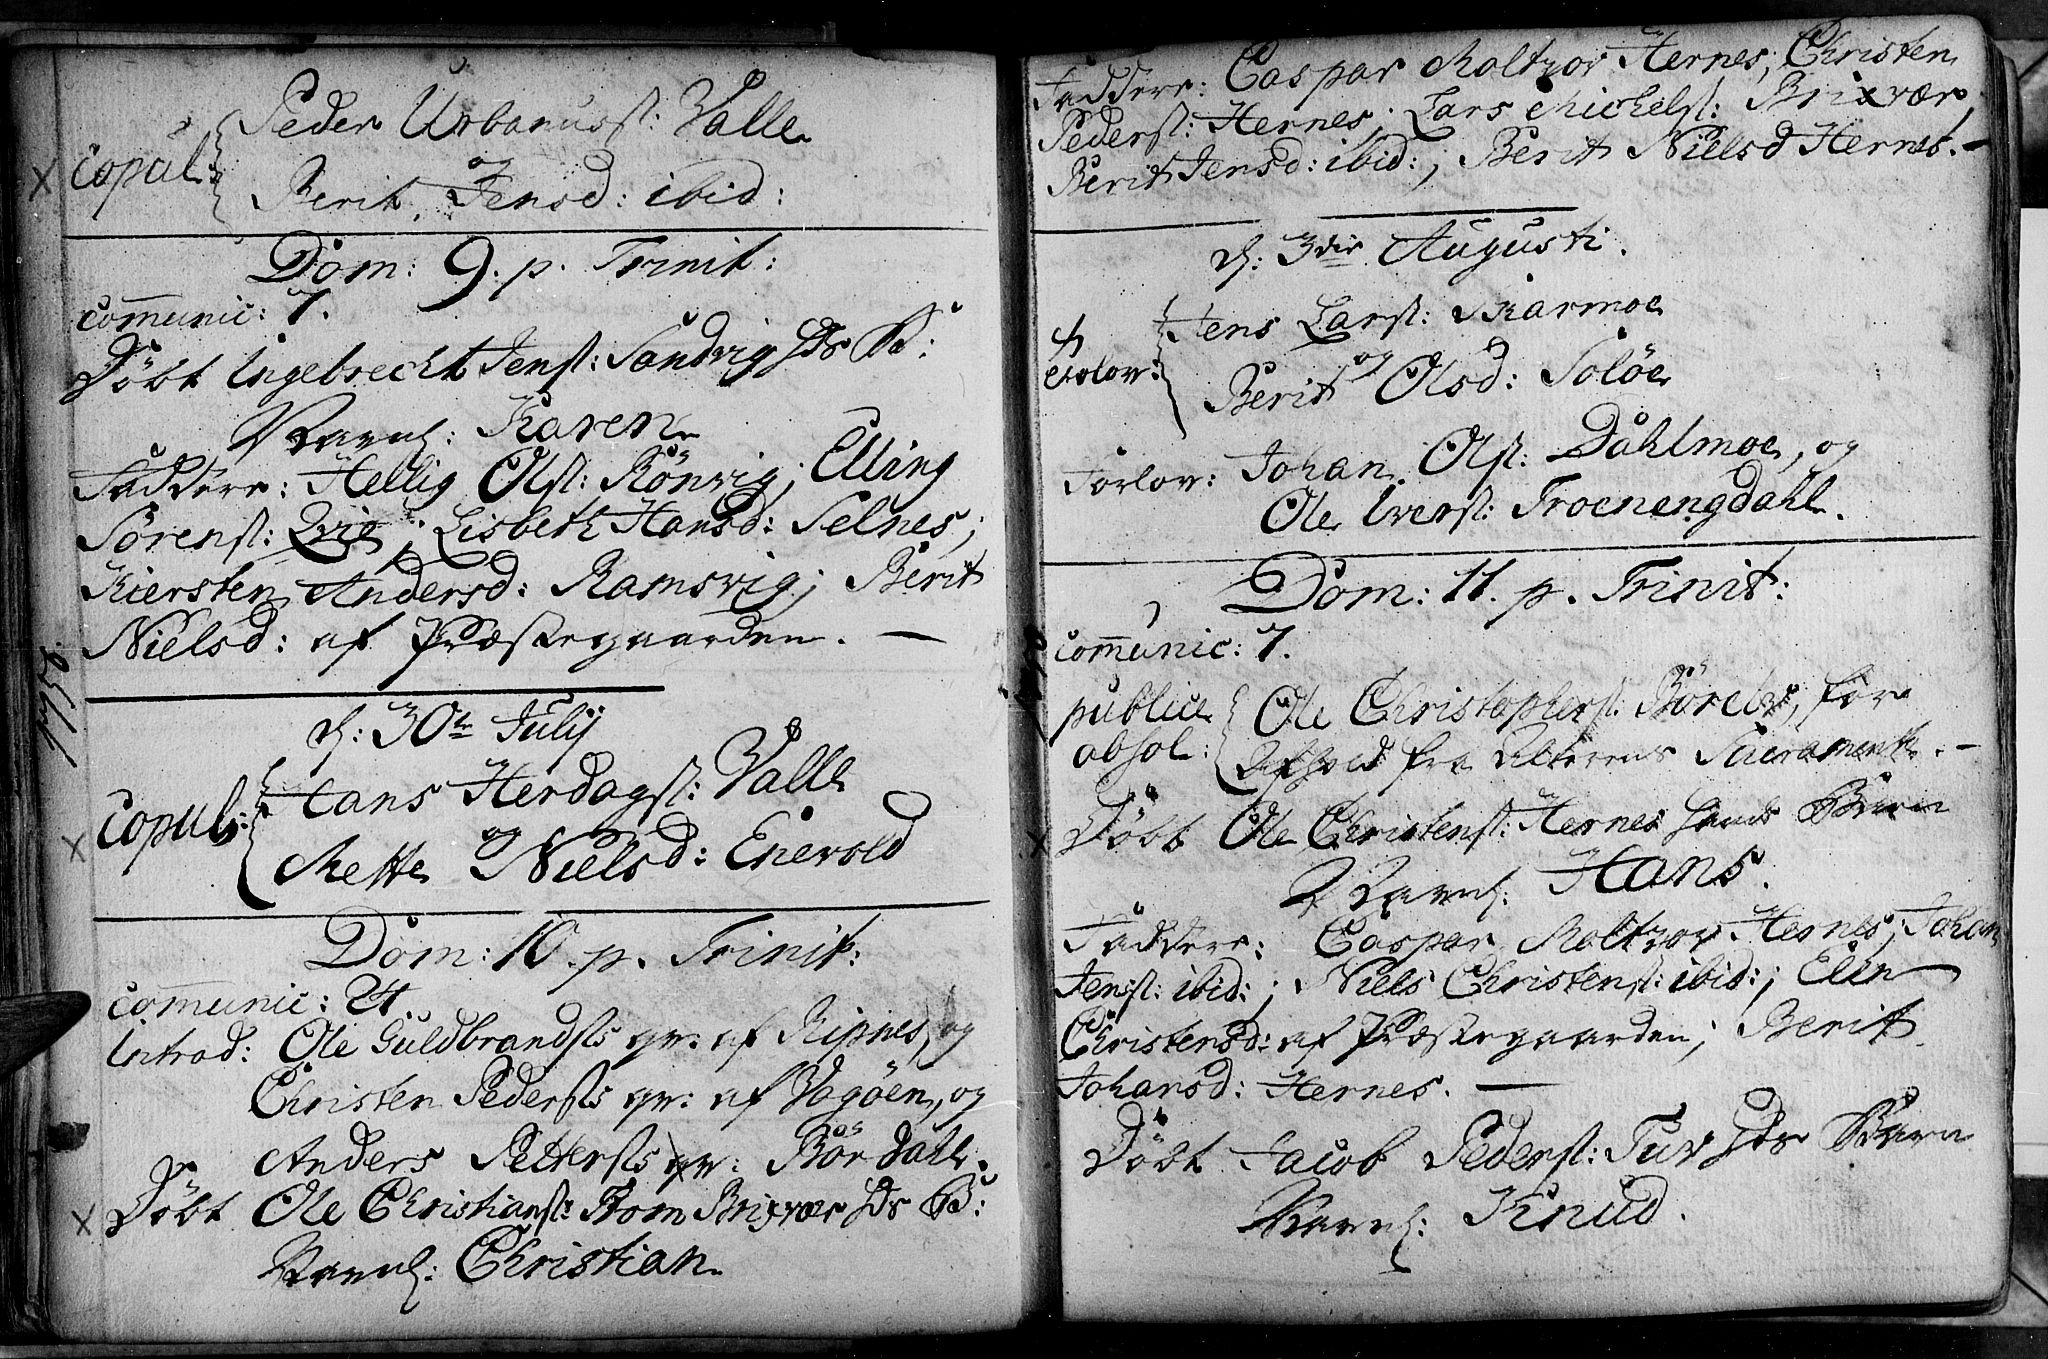 Peder Urbanusſ: Valle
copul: og
Berit Jensd: ibid:
Dom: 9. p. Trinit:
communic: 7.
Döbt Ingebrecht Jensſ: Sandvig Hs B:
Navnl: Karen
Faddere: Hellig Olsſ: Rönvig; Elling
Sörensſ: Qvig; Lisbeth Hansd: Selnes;
Kiersten Andersd: Ramsvig; Berit
Nielsd: af Præstegaarden. —
d: 30te Julij
Hans Herdagsſ: Valle
copul: og
Mette Nielsd: Enevold
Dom: 10. p. Trinit:
communic: 24
Introd: Ole Guldbrandsſs qv: af Ripnes, og
Christen Pedersſs qv: af Vagöen, og
Anders Pettersſs qv: Bördahl.
Döbt Ole Christiansſ: Brixvær Hs B:
Navnl: Christian
Faddere: Caspar Moltzov Hernes; Christen
Pedersſ: Hernes; Lars Michelsſ: Brixvær;
Berit Jensd: ibid:; Berit Nielsd Hernes. —
d: 3die Augusti.
Jens Larsſ: Skarmoe
trolov: og
Berit Olsd: Solöe
Forlov: Johan Olsſ: Dahlmoe, og
Ole Iversſ: Troenengdahl.
Dom: 11. p. Trinit:
communic: 7.
publice Ole Christophersſ: för
absol: Afhold fra Alterens Sacramente. —
Döbt Ole Christensſ: Hernes Hands Barn
Navnl: Hans.
Faddere: Caspar Moltzov Hernes; Johan
Jensſ: ibid:; Niels Christensſ: ibid:; Elen
Christensd: af Præstegaarden; Berit
Johansd: Hernes. —
Döbt Jacob Pedersſ: Tuv Hs Barn
Navnl: Knud.